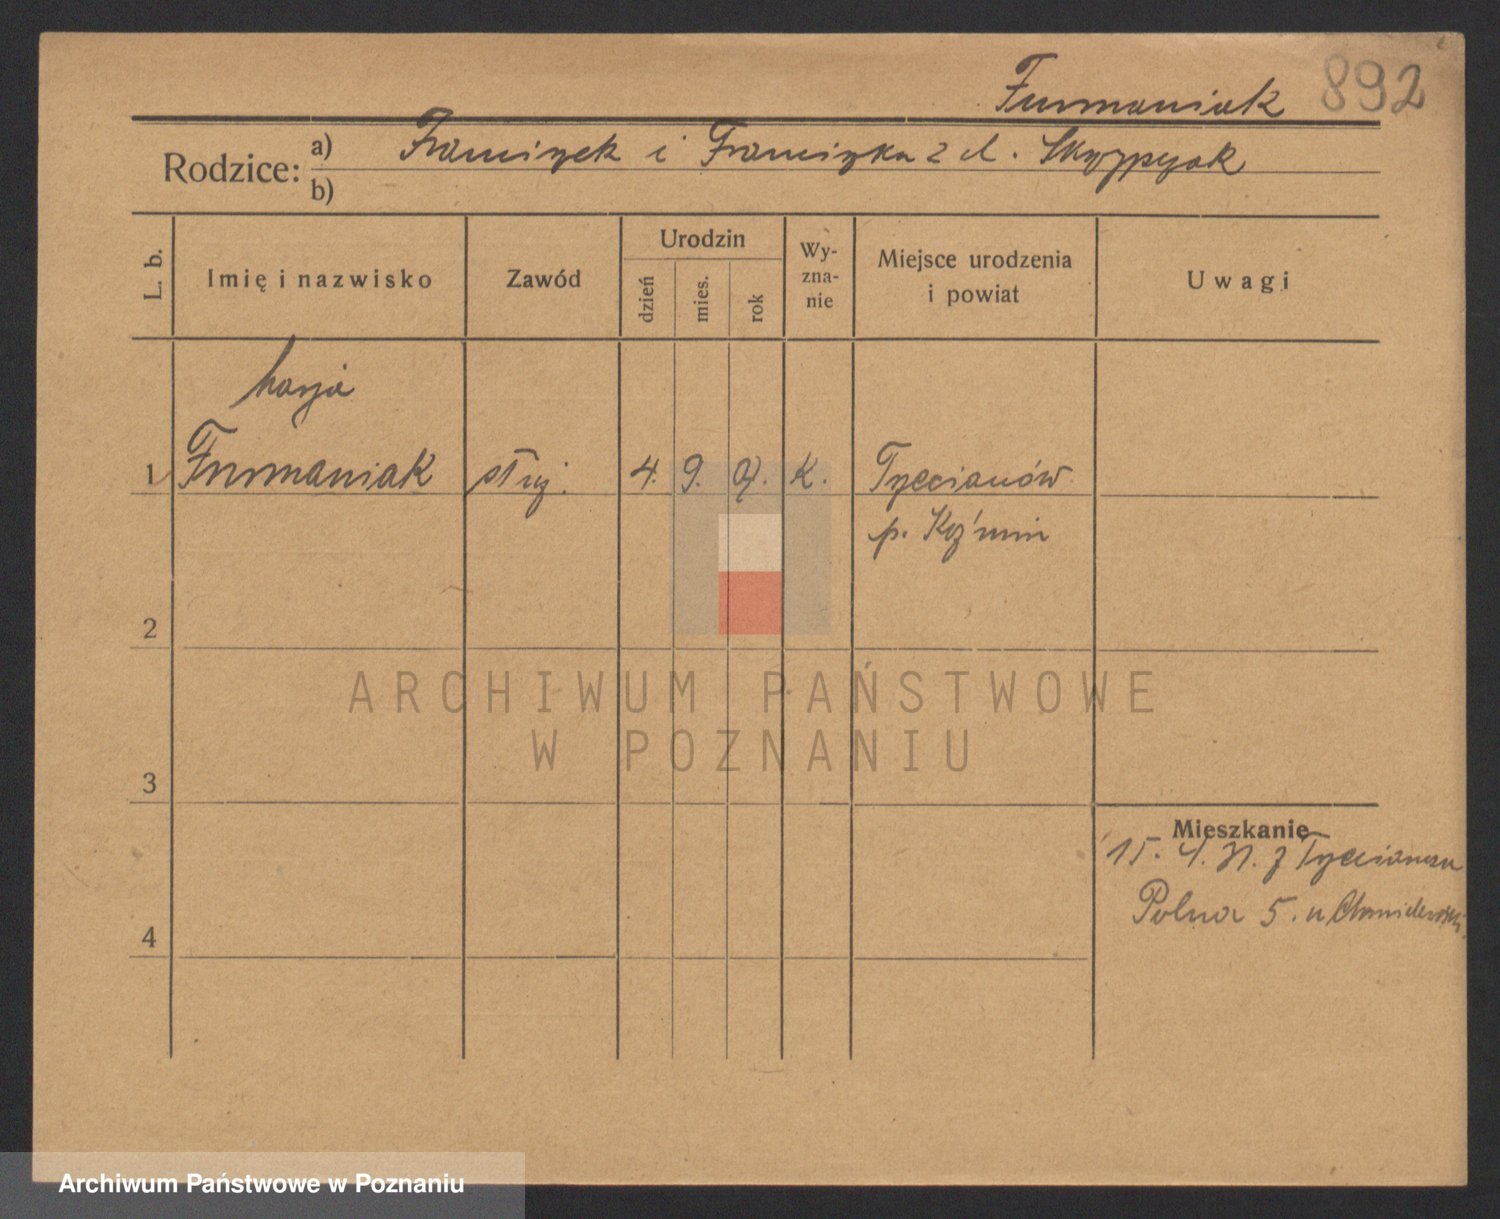 Furmaniak 892
Rodzice: a) Franciszek i Franciszka z d. Skrzypczak
b)
L. b. Imię i nazwisko Zawód Urodzin dzień mies. rok Wyznanie Miejsce urodzenia i powiat Uwagi
Marja
1 Furmaniak służ. 4. 9. K.
p. Koźmin
2
ARCHIWUM PAŃSTWOWE
W POZNANIU
3
Mieszkanie
15. 4. 31. z
4 Polna 5. u
Archiwum Państwowe w Poznaniu